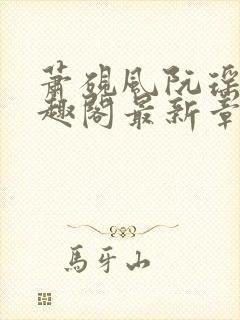 萧砚风阮瑶
趣阁最新章
馬牙山